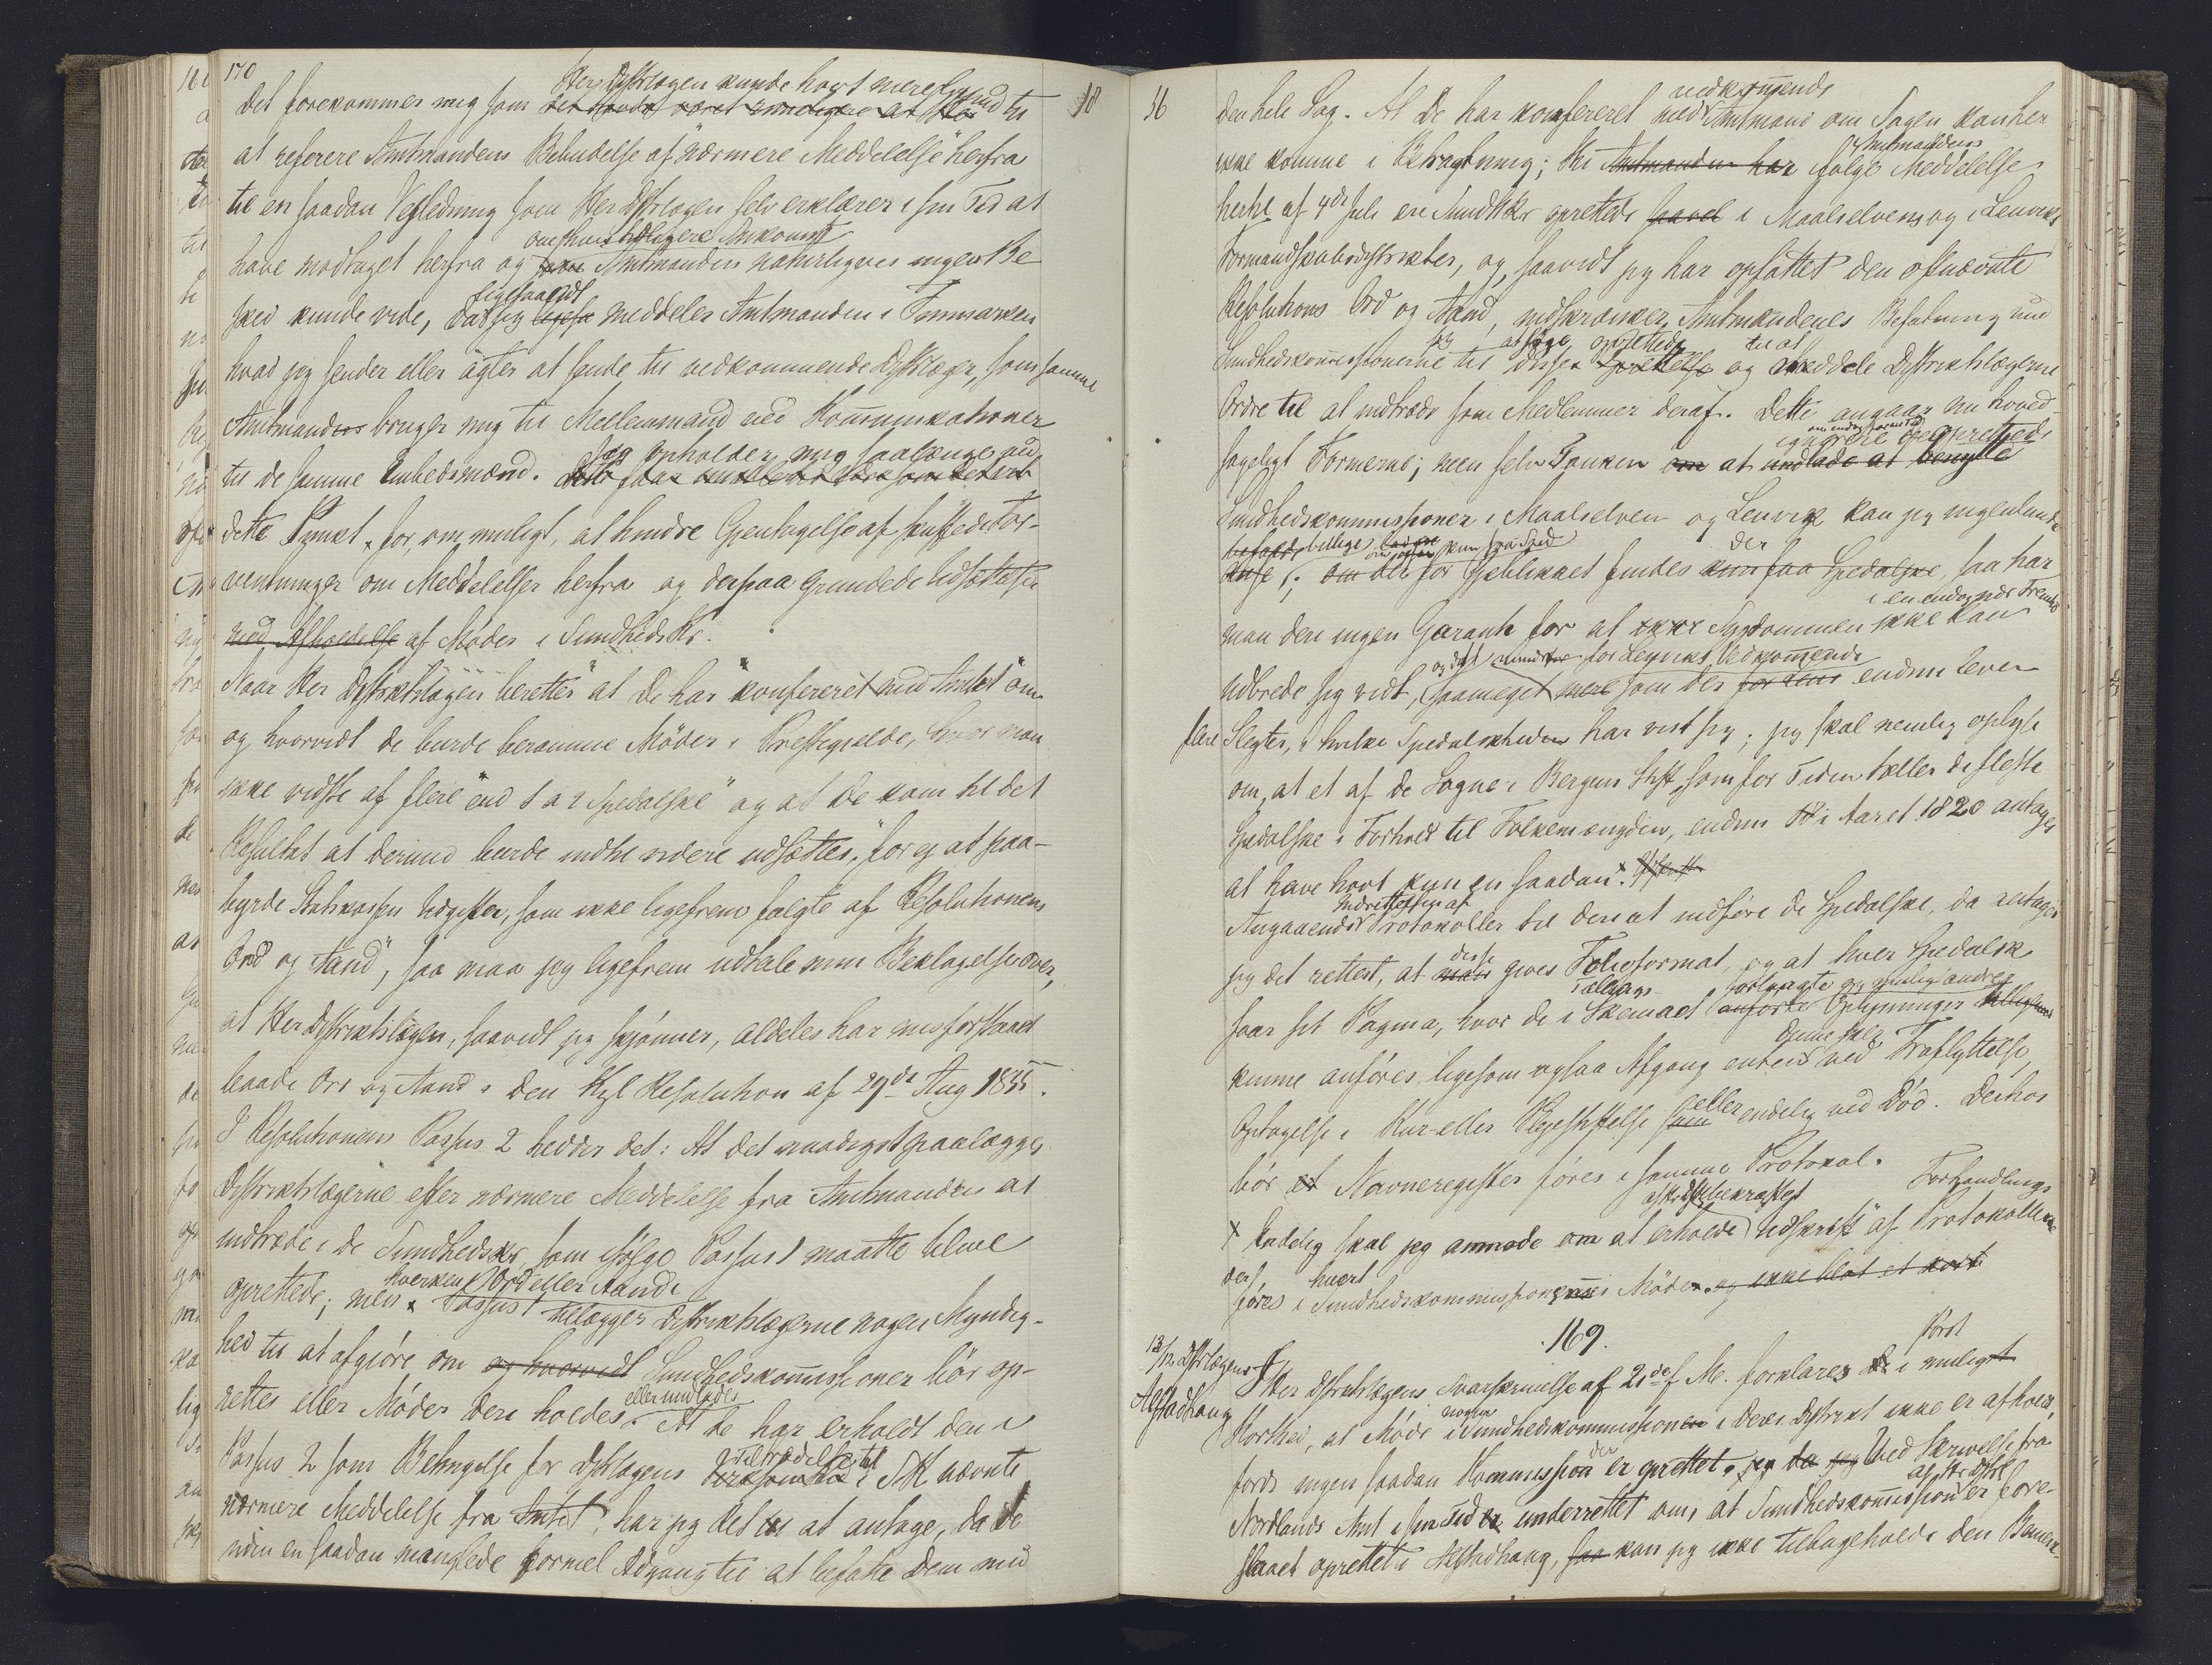 170
Det forekommer mig som Her Distrlægen kunde havt mere Grund til
at referere Amtmandens Bebudelse af "nærmere Meddelelse" herfra
til en saadan Vejledning som Her Distrlægen selv erklærer i sin Tid at
have modtaget herfra og om hvis tidligere Ankomst Amtmanden naturligvis ingen Be-
sked kunde vide, da jeg ligesaalidt meddeler Amtmanden i Finmarken
hvad jeg sender eller agter at sende til vedkommende Distrlæger, som samme
Amtmand bruger mig til Mellemmand ved Kommunikationer
til de samme Embedsmænd. Jeg opholder mig saalænge ved
dette Punkt for, om muligt, at hindre Gjentagelse af skuffede For-
ventninger om Meddelelser herfra og derpaa grundede Udsættelser
af Møder i Sundheds Kr.
Naar Her Distriktslægen beretter at De har "konfereret med Amtet" om
og hvorvidt de burde beramme Møder i Præstegjelde, hvor man
ikke vidste af flere "end 1 a 2 Spedalske" og at De kom til det
Resultat at dermed burde indtil videre udsættes, "for ej at paa-
byrde Statskassen Udgifter, som ikke ligefrem fulgte af Resolutionens
Ord og Aand", saa maa jeg ligefrem udtale min Beklagelse over,
at Her Distriktslægen, saavidt jeg skjønner, aldeles har misforstaaet
baade Ord og Aand i den Kgl Resolution af 29de Aug 1855.
I Resolutionens Passus 2 hedder det: At det naadigst paalægges
Distriktslægerne efter nærmere Meddelelse fra Amtmanden at
indtræde i de Sundhedskr, som ifølge Passus 1 maatte blive
oprettede; men hverken Ord eller Aand i Passus 1 tillægger Distriktslægerne nogen Myndig-
hed til at afgjøre om Sundhedskommissioner bør op-
rettes eller Møder deri holdes eller undlades. At De har erholdt den i
Passus 2 som Betingelse for Dstlægens Tiltrædelse til SK nævnte
nærmere Meddelelse fra Amtet, har jeg det at antage, da De
uden en saadan manglede formel Adgang til at befatte Dem med
18
16
den hele Sag. At De har konfereret med vedkommende Amtmand om Sagen kan her
ikke komme i Betragtning; thi ifølge Amtmandens Meddelelse
hertil af 4de Juli ere SundhKr oprettede i Maalselvens og i Lenviks
Formandskabsdistrikter, og, saavidt jeg har opfattet den oftnævnte
Resolutions Ord og Aand, indskrænker Amtmandenes Befatning med
Sundhedskommissionerne sig til at faae disse oprettede og til at meddele Distriktslægerne
Ordre til at indtræde som Medlemmer deraf. Dette angaar nu hoved-
sageligt Formerne; men selve Tanken at ignorere de oprettede
Sundhedskommissioner i Maalselven og Lenvik kan jeg ingenlunde
billige; om der for Øieblikket findes kun faa Sped, saa har
man deri ingen Garanti for at Sygdommen ikke kan i en endog nær Fremtid
udbrede sig vidt, og det for Lenviks Vedkommende saameget mere som der endnu lever
flere Slegter, i hvilke Spedalskheden har vist sig; jeg skal nemlig oplyse
om, at et af de Sogne i Bergens Stift, som for Tiden tæller de fleste
Spedalske i Forhold til Folkemængden, endnu i Aaret 1820 antages
at have havt kun en saadan.
Angaaende Indrettelsen af Protokoller til deri at indføre de Spedalske, da antager
jeg det rettest, at disse gives Folioformat, og at hver Spedalsk
faar sit Pagina, hvor de i Skemaet forlangte og mulig andre Oplysninger
kunne anføres, ligesom ogsaa Afgang enten ved Fraflyttelse,
Optagelse i Kur- eller Plejestiftelse eller endelig ved Død. Derhos
bør et Navneregister føres i samme Protokol.
Endelig skal jeg anmode om at erholde Udskrift af Forhandlings Protokollerne
der føres i hvert Sundhedskommissions Møde.
169.
12/12 Distrlægen i
Alstadhaug
I Her Distriktslægens Svarskrivelse af 21de f M. forklares først i muligst
Korthed, at Møde i nogen Sundhedskommission i Deres Distrikt ikke er afholdt,
fordi ingen saadan Kommission der er oprettet. Ved Skrivelse fra
Nordlands Amt i sin Tid underrettet om, at Sundhedskommission er fore-
slaaet oprettet i Alstadhaug, kan jeg ikke tilbageholde den Bemerk-